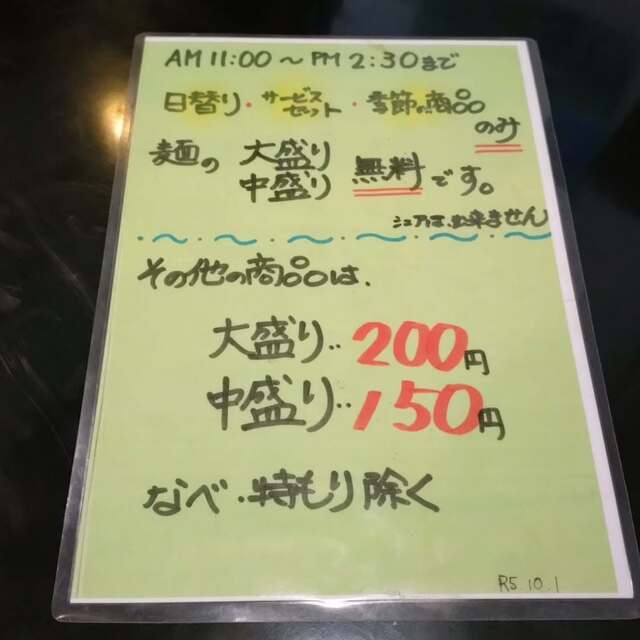 AM 11:00 〜 PM 2:30まで
日替り・サービスセット・季節の商品
のみ
麺の 大盛り
中盛り 無料です。
シェアは出来ません
その他の商品は、
大盛り‥200円
中盛り‥150円
なべ・特もり除く
R5.10.1